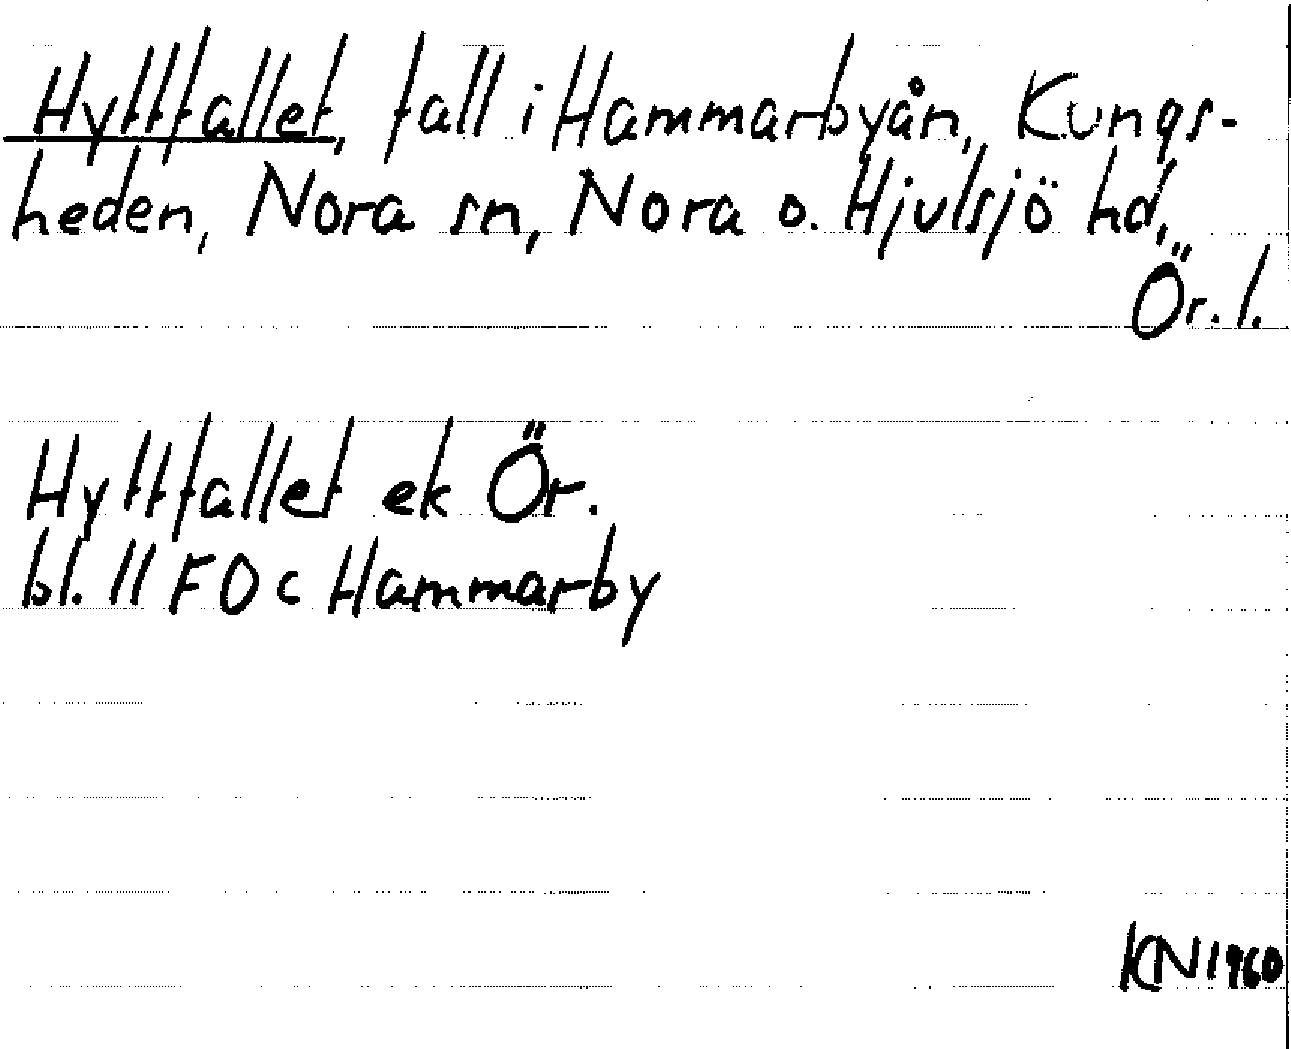 Hyttfallet, fall i Hammarbyån, Kungs-
heden, Nora sn, Nora o. Hjulsjö hd,
Ör. l.
Hyttfallet ek Ör.
bl. 11 F0c Hammarby
KN 1960